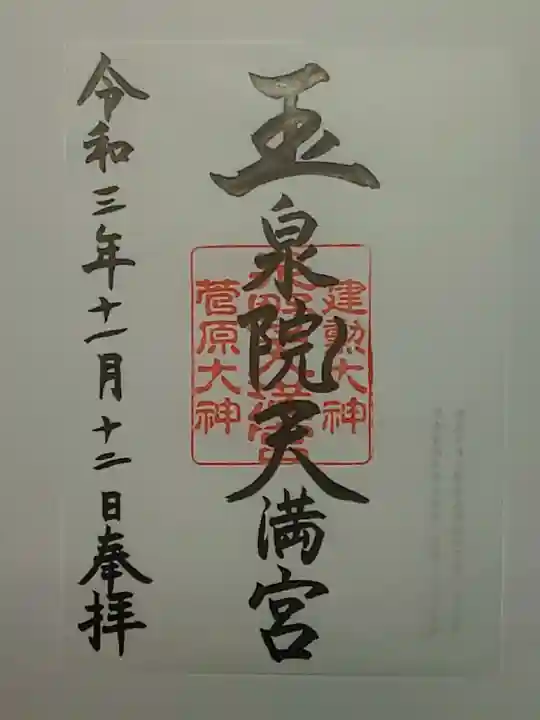 建勲大神
玉泉院天満宮
菅原大神
令和三年十一月十二日奉拝